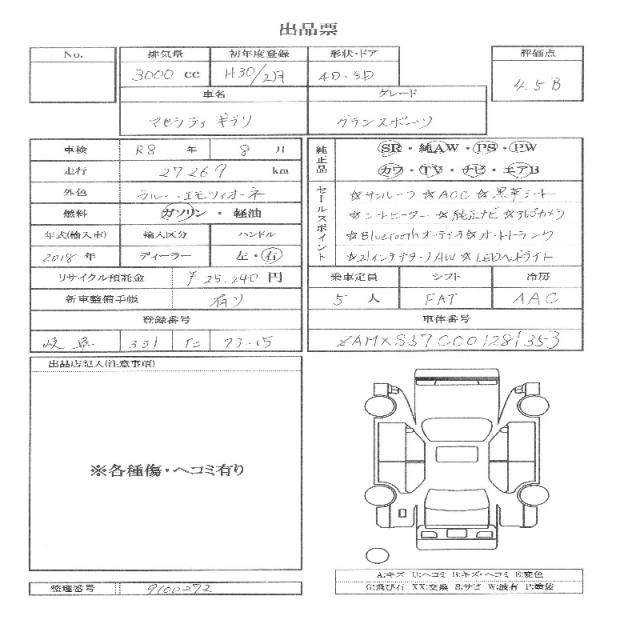 出品票
No. 排気量 初年度登録 形状・ドア 評価点
3000 cc H30/2月 4D・SD 4.5 B
車名 グレード
マセラティ ギブリ グランスポーツ
車検 R8 年 8 月
走行 27269 km
外色 ブルー・エモツィオーネ
燃料 ガソリン ・ 軽油
年式(輸入車) 輸入区分 ハンドル
2018 年 ディーラー 左・右
リサイクル預託金 ¥25.240 円
新車整備手帳 有り
登録番号
岐阜 331 73-15
純正品 SR・純AW・PS・PW
カワ・TV・ナビ・エアB
セールスポイント
☆サンルーフ ☆ACC ☆黒革シート
☆シートヒーター ☆純正ナビ ☆カメラ
☆Bluetoothオーディオ ☆オートトランク
☆21インチAW ☆LEDヘッドライト
乗車定員 シフト 冷房
5 人 FAT AAC
車体番号
ZAMXS57C001281353
出品店記入(注意事項)
※各種傷・ヘコミ有り
A:キズ U:ヘコミ B:キズ・ヘコミ E:変色
G:飛び石 XX:交換 S:サビ W:波有 P:塗装
整理番号 9100272